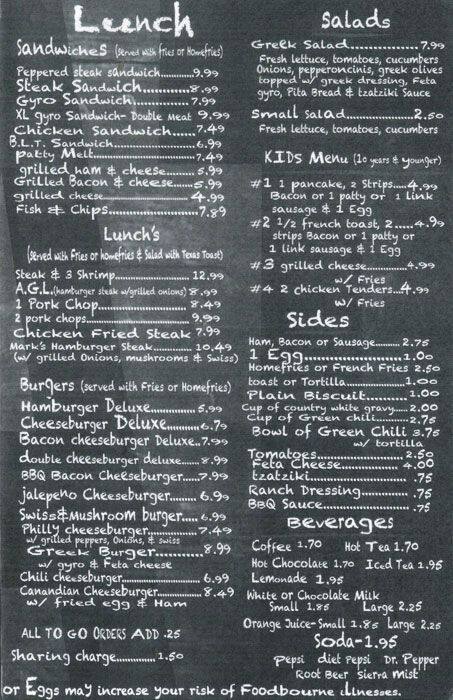 Lunch
Sandwiches (served with fries or Homefries)
Peppered steak sandwich............9.99
Steak Sandwich..............8.99
Gyro Sandwich.............7.99
XL gyro Sandwich- Double Meat 9.99
Chicken Sandwich.......7.49
B.L.T. Sandwich................6.99
patty Melt......................7.49
grilled ham & cheese.......5.99
Grilled Bacon & cheese......5.99
grilled cheese................4.99
Fish & Chips....................7.89
Lunch's
(served with Fries or homefries & Salad with Texas Toast)
Steak & 3 Shrimp................12.99
A.G.L.(hamburger steak w/grilled onions) 8.99
1 Pork Chop..................8.49
2 pork chops....................9.99
Chicken Fried Steak 7.99
Mark's Hamburger Steak............10.49
(w/ grilled Onions, mushrooms & Swiss)
Burgers (served with Fries or Homefries)
Hamburger Deluxe...........5.99
Cheeseburger Deluxe.......6.79
Bacon cheeseburger Deluxe..7.99
double cheeseburger deluxe......8.99
BBQ Bacon Cheeseburger........7.99
jalepeno Cheeseburger.......6.99
Swiss&Mushroom burger....6.99
Philly cheeseburger...........7.49
w/ grilled peppers, Onions, & swiss
Greek Burger..............8.99
w/ gyro & Feta cheese
Chili cheeseburger................6.99
Canandian Cheeseburger...........8.49
w/ fried egg & Ham
ALL TO GO ORDERS ADD .25
Sharing charge...........1.50
Salads
Greek Salad................7.99
Fresh lettuce, tomatoes, cucumbers
Onions, pepperoncinis, greek olives
topped w/ greek dressing, Feta
gyro, Pita Bread & tzatziki Sauce
Small Salad...................2.50
Fresh lettuce, tomatoes, cucumbers
KIDS Menu (10 years & younger)
#1 1 pancake, 2 Strips.....4.99
Bacon or 1 patty or 1 link
sausage & 1 Egg
#2 2 1/2 french toast, 2.....4.99
strips Bacon or 1 patty or
1 link sausage & 1 Egg
#3 grilled cheese............4.99
w/ Fries
#4 2 chicken Tenders...4.99
w/ Fries
Sides
Ham, Bacon or Sausage.........2.75
1 Egg....................1.00
Homefries or French Fries 2.50
toast or Tortilla..............1.00
Plain Biscuit...........1.00
Cup of country white gravy.....2.00
Cup of Green chili..........2.75
Bowl of Green Chili 3.75
w/ tortilla
Tomatoes....................2.50
Feta Cheese................4.00
tzatziki.......................75
Ranch Dressing..............75
BBQ Sauce....................75
Beverages
Coffee 1.70 Hot Tea 1.70
Hot Chocolate 1.70 Iced Tea 1.95
Lemonade 1.95
White or Chocolate Milk
Small 1.85 Large 2.25
Orange Juice-Small 1.85 Large 2.25
Soda-1.95
Pepsi diet Pepsi Dr. Pepper
Root Beer Sierra Mist
or Eggs may increase your risk of Foodbourne illnesses.